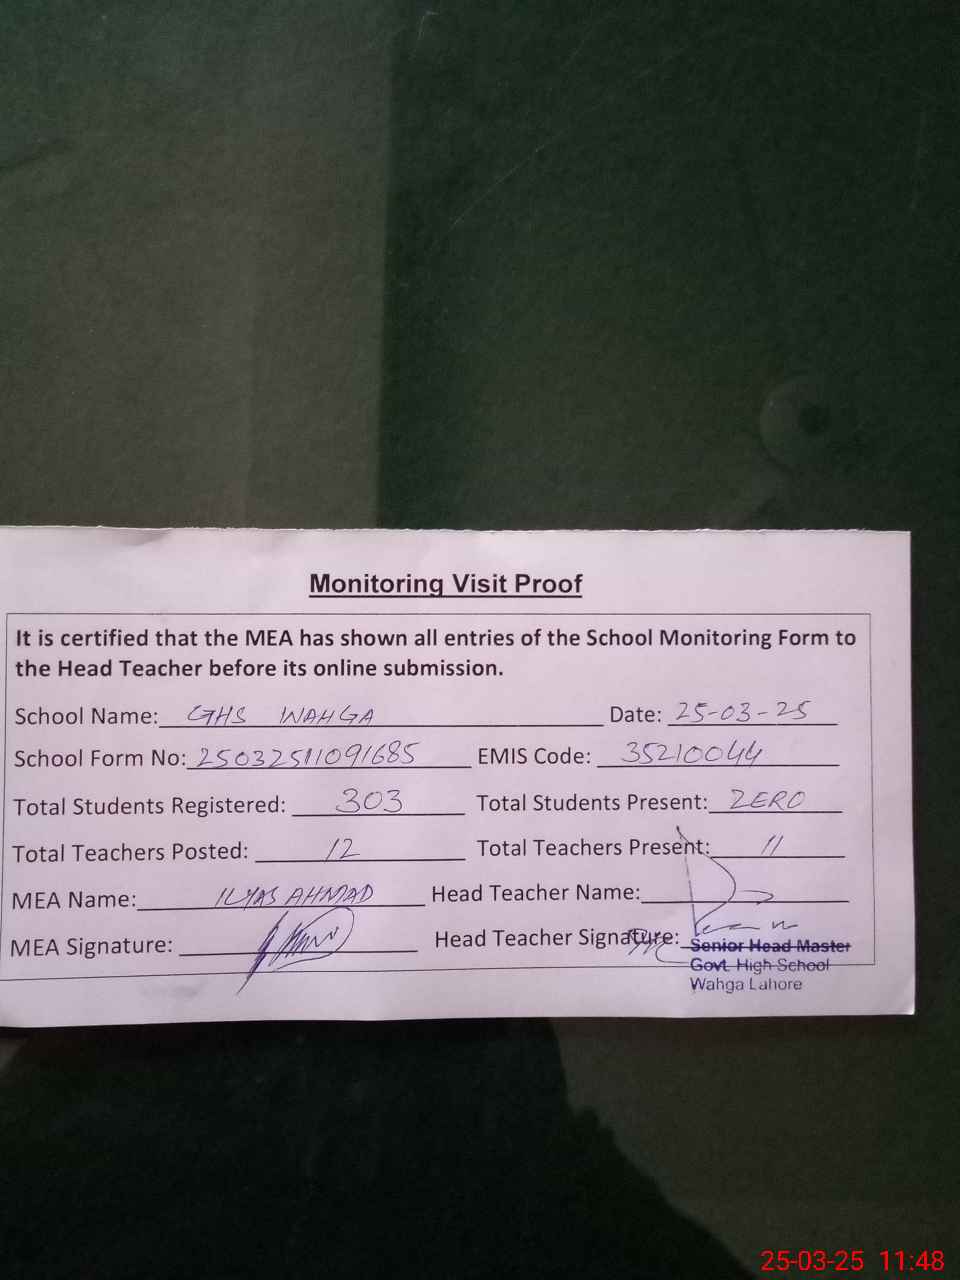 Monitoring Visit Proof
It is certified that the MEA has shown all entries of the School Monitoring Form to
the Head Teacher before its online submission.
School Name: GHS WAHGA Date: 25-03-25
School Form No: 25032511091685 EMIS Code: 35210044
Total Students Registered: 303 Total Students Present: ZERO
Total Teachers Posted: 12 Total Teachers Present: 11
MEA Name: ILYAS AHMAD Head Teacher Name:
MEA Signature: Head Teacher Signature:
Senior Head Master
Govt. High School
Wahga Lahore
25-03-25 11:48